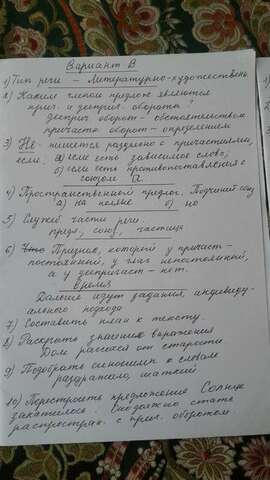 Вариант В
1) Тип речи - Литературно-художествен.
2) Каким членом предлож. являются
прич. и дееприч. обороты?
дееприч. оборот - обстоятельством
причастн. оборот - определением
3) Не - пишется раздельно с причастиями,
если: а) если есть зависимое слово,
б) если есть противопоставление с
союзом а.
4) Пространственный предлог. Подчинит. союз
а) на полке б) но
5) Служеб. части речи.
предл., союз, частица
6) Что Признак, который у причаст. -
постоянный, у глаг. непостоянный,
а у деепричаст - нет.
время
Дальше идут задания, индивиду-
ального подхода
7) Составить план к тексту.
8) Раскрыть значение выражения
Дом рассохся от старости
9) Подобрать синонимы к словам
раздражало, шаткий
10) Перестроить предложение Солнце
закатилось. Оно должно стать
распростран. с прич. оборотом